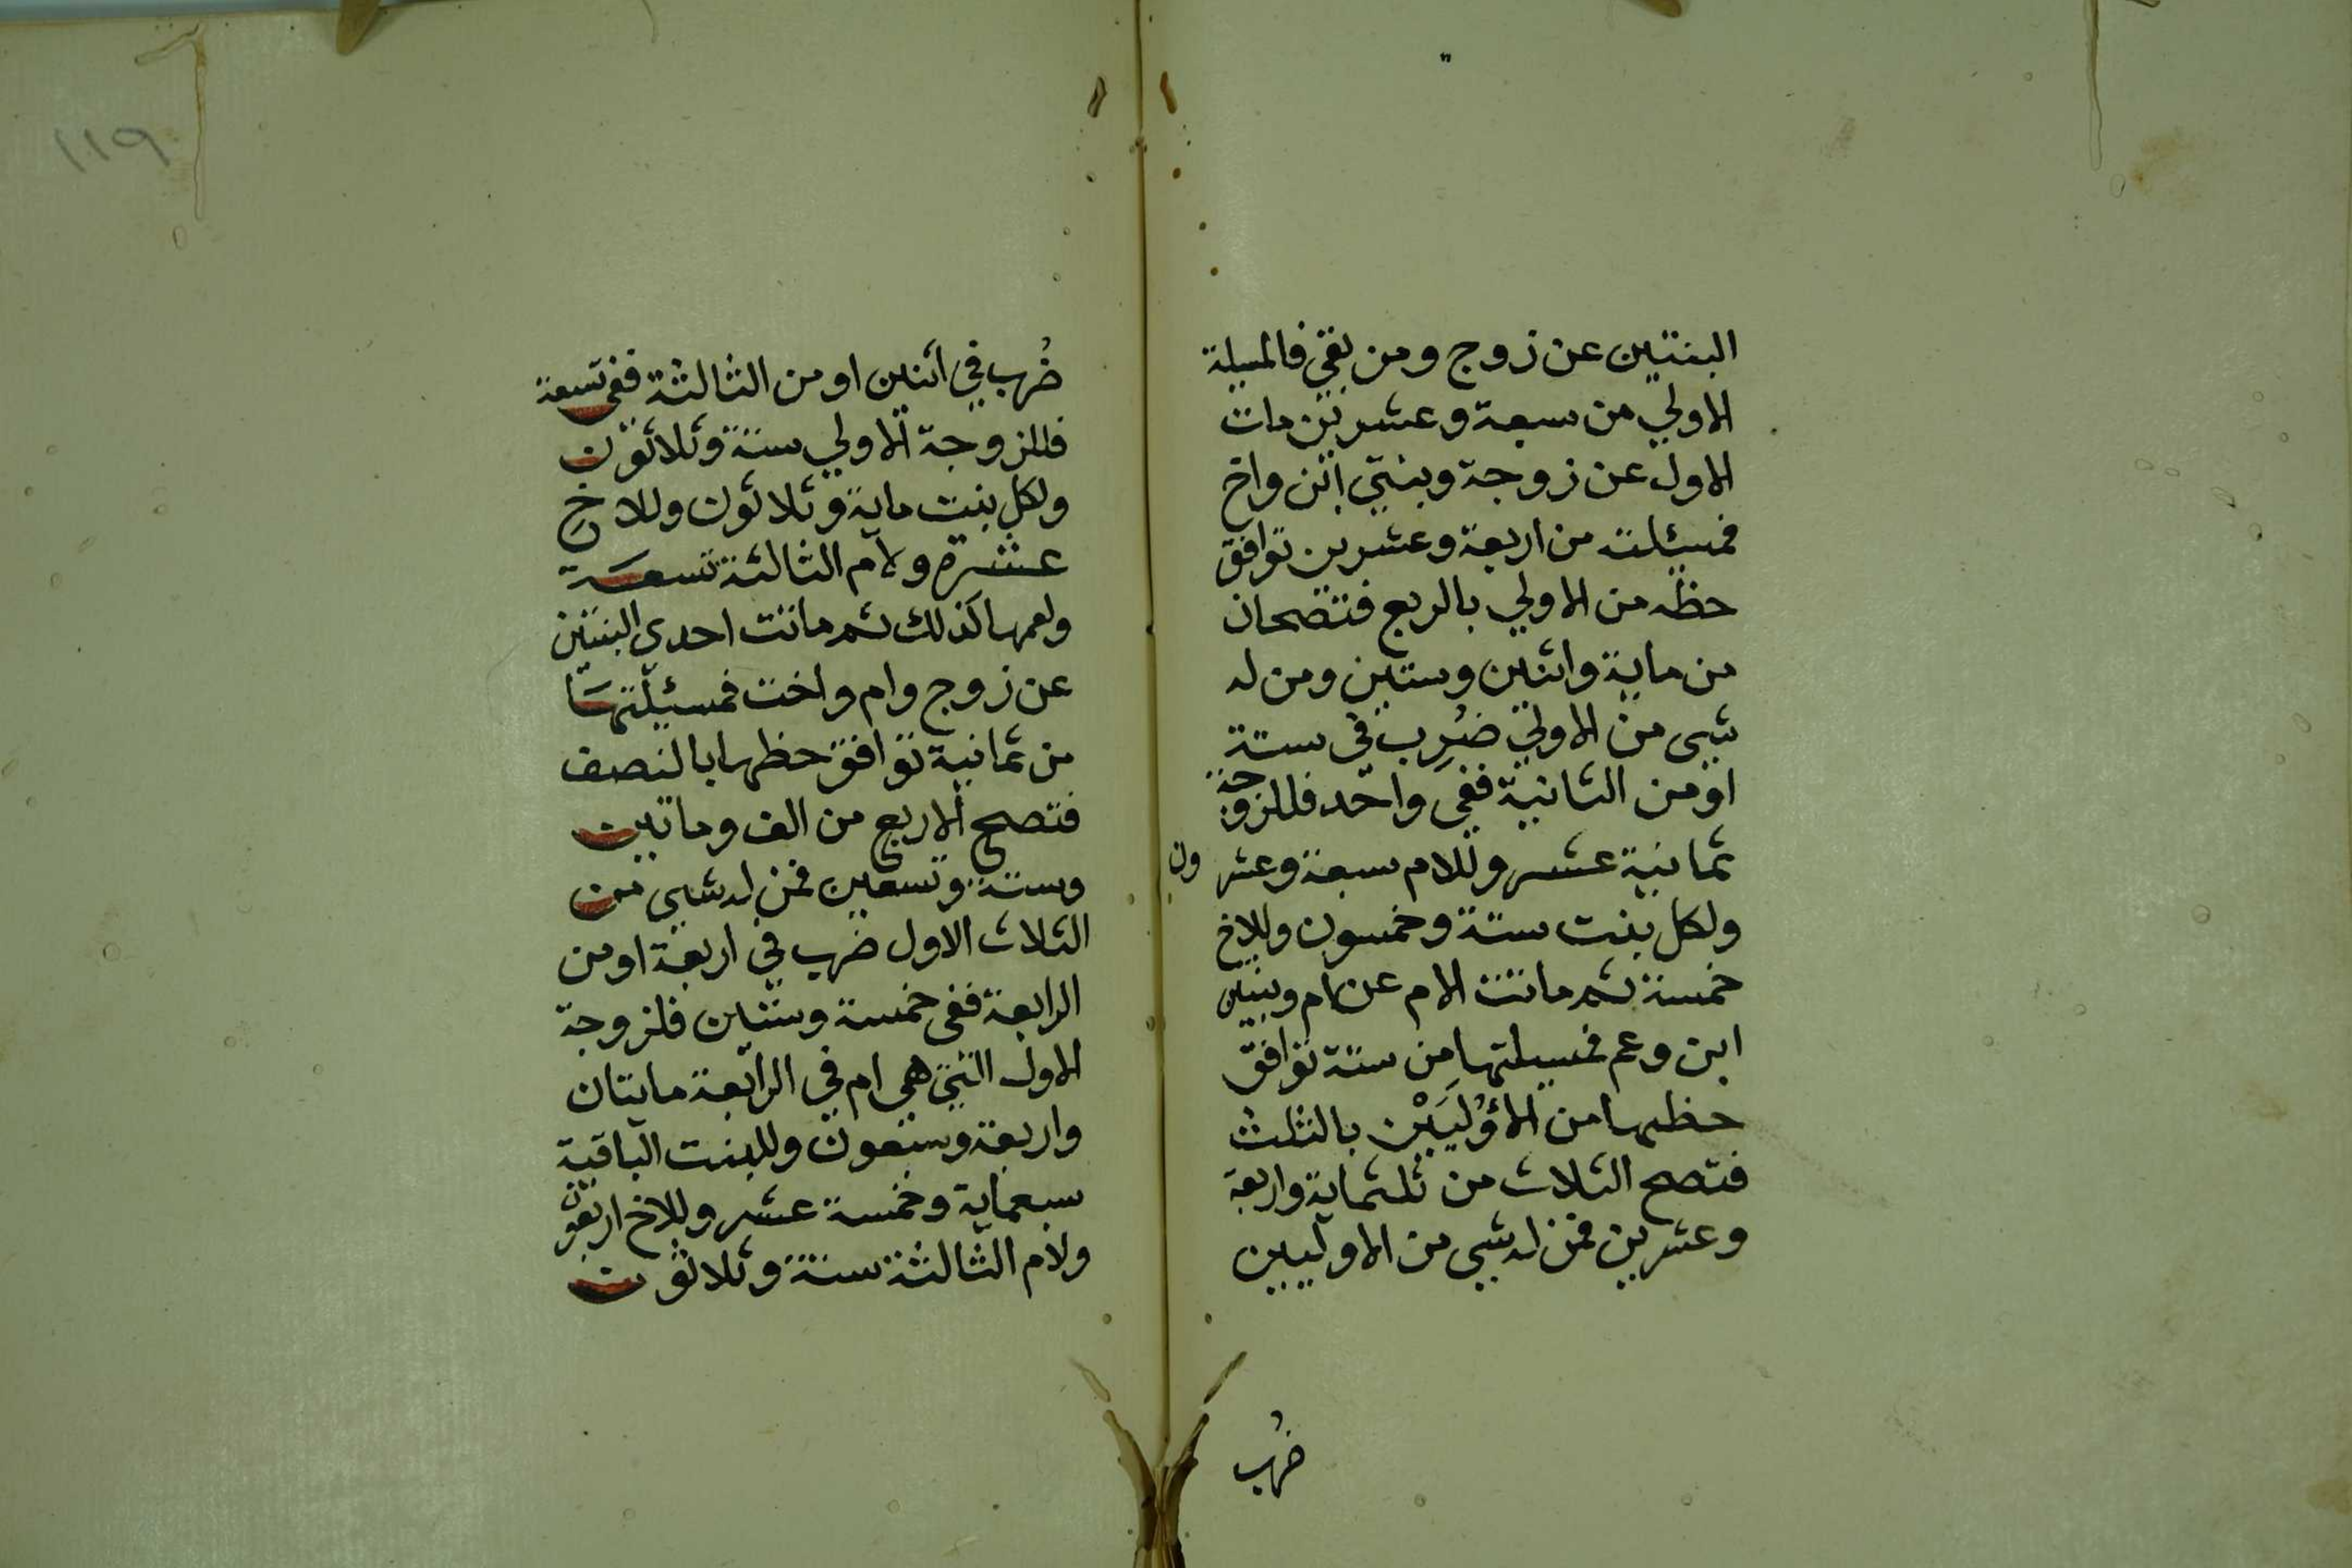 البنتين عن زوج ومن بقي فالمسيلة
الاولي من سبعة وعشرين مات
الاول عن زوجة وبنتي ابن واخ
فمسيلته من اربعة وعشرين توافق
حظه من الاولي بالربع فتصحان
من ماية واثنين وستين ومن له
شيى من الاولي ضُرِب في ستة
اومن الثانية ففى واحد فللزوجة
ثمانية عشر وللام سبعة وعشرون
ولكل بنت ستة وخمسون وللاخ
خمسة ثم ماتت الام عن ام وبنتى
ابن وعم فمسيلتها من ستة توافق
حظها من الاُوْلَيَيْن بالثلث
فتصح الثلاث من ثلثماية واربعة
وعشرين فمن له شيى من الاوليين
ضُرب
١١٩
ضُرب في اثنين اومن الثالثة ففى تسعة
فللزوجة الاولي ستة وثلاثون
ولكل بنت ماية وثلاثون وللاخ
عشرة ولام الثالثة تسعة
ولعمها كذلك ثم ماتت احدى البنتين
عن زوج وام واخت فمسئيلتها
من ثمانية توافق حظها بالنصف
فتصح الاربع من الف وماتين
وستة وتسعين فمن له شيى من
الثلاث الاول ضرب في اربعة اومن
الرابعة ففى خمسة وستين فلزوجة
الاول التي هي ام في الرابعة مايتان
واربعة وسبعون وللبنت الباقية
سبعماية وخمسة عشر وللاخ اربعون
ولام الثالثة ستة وثلاثون